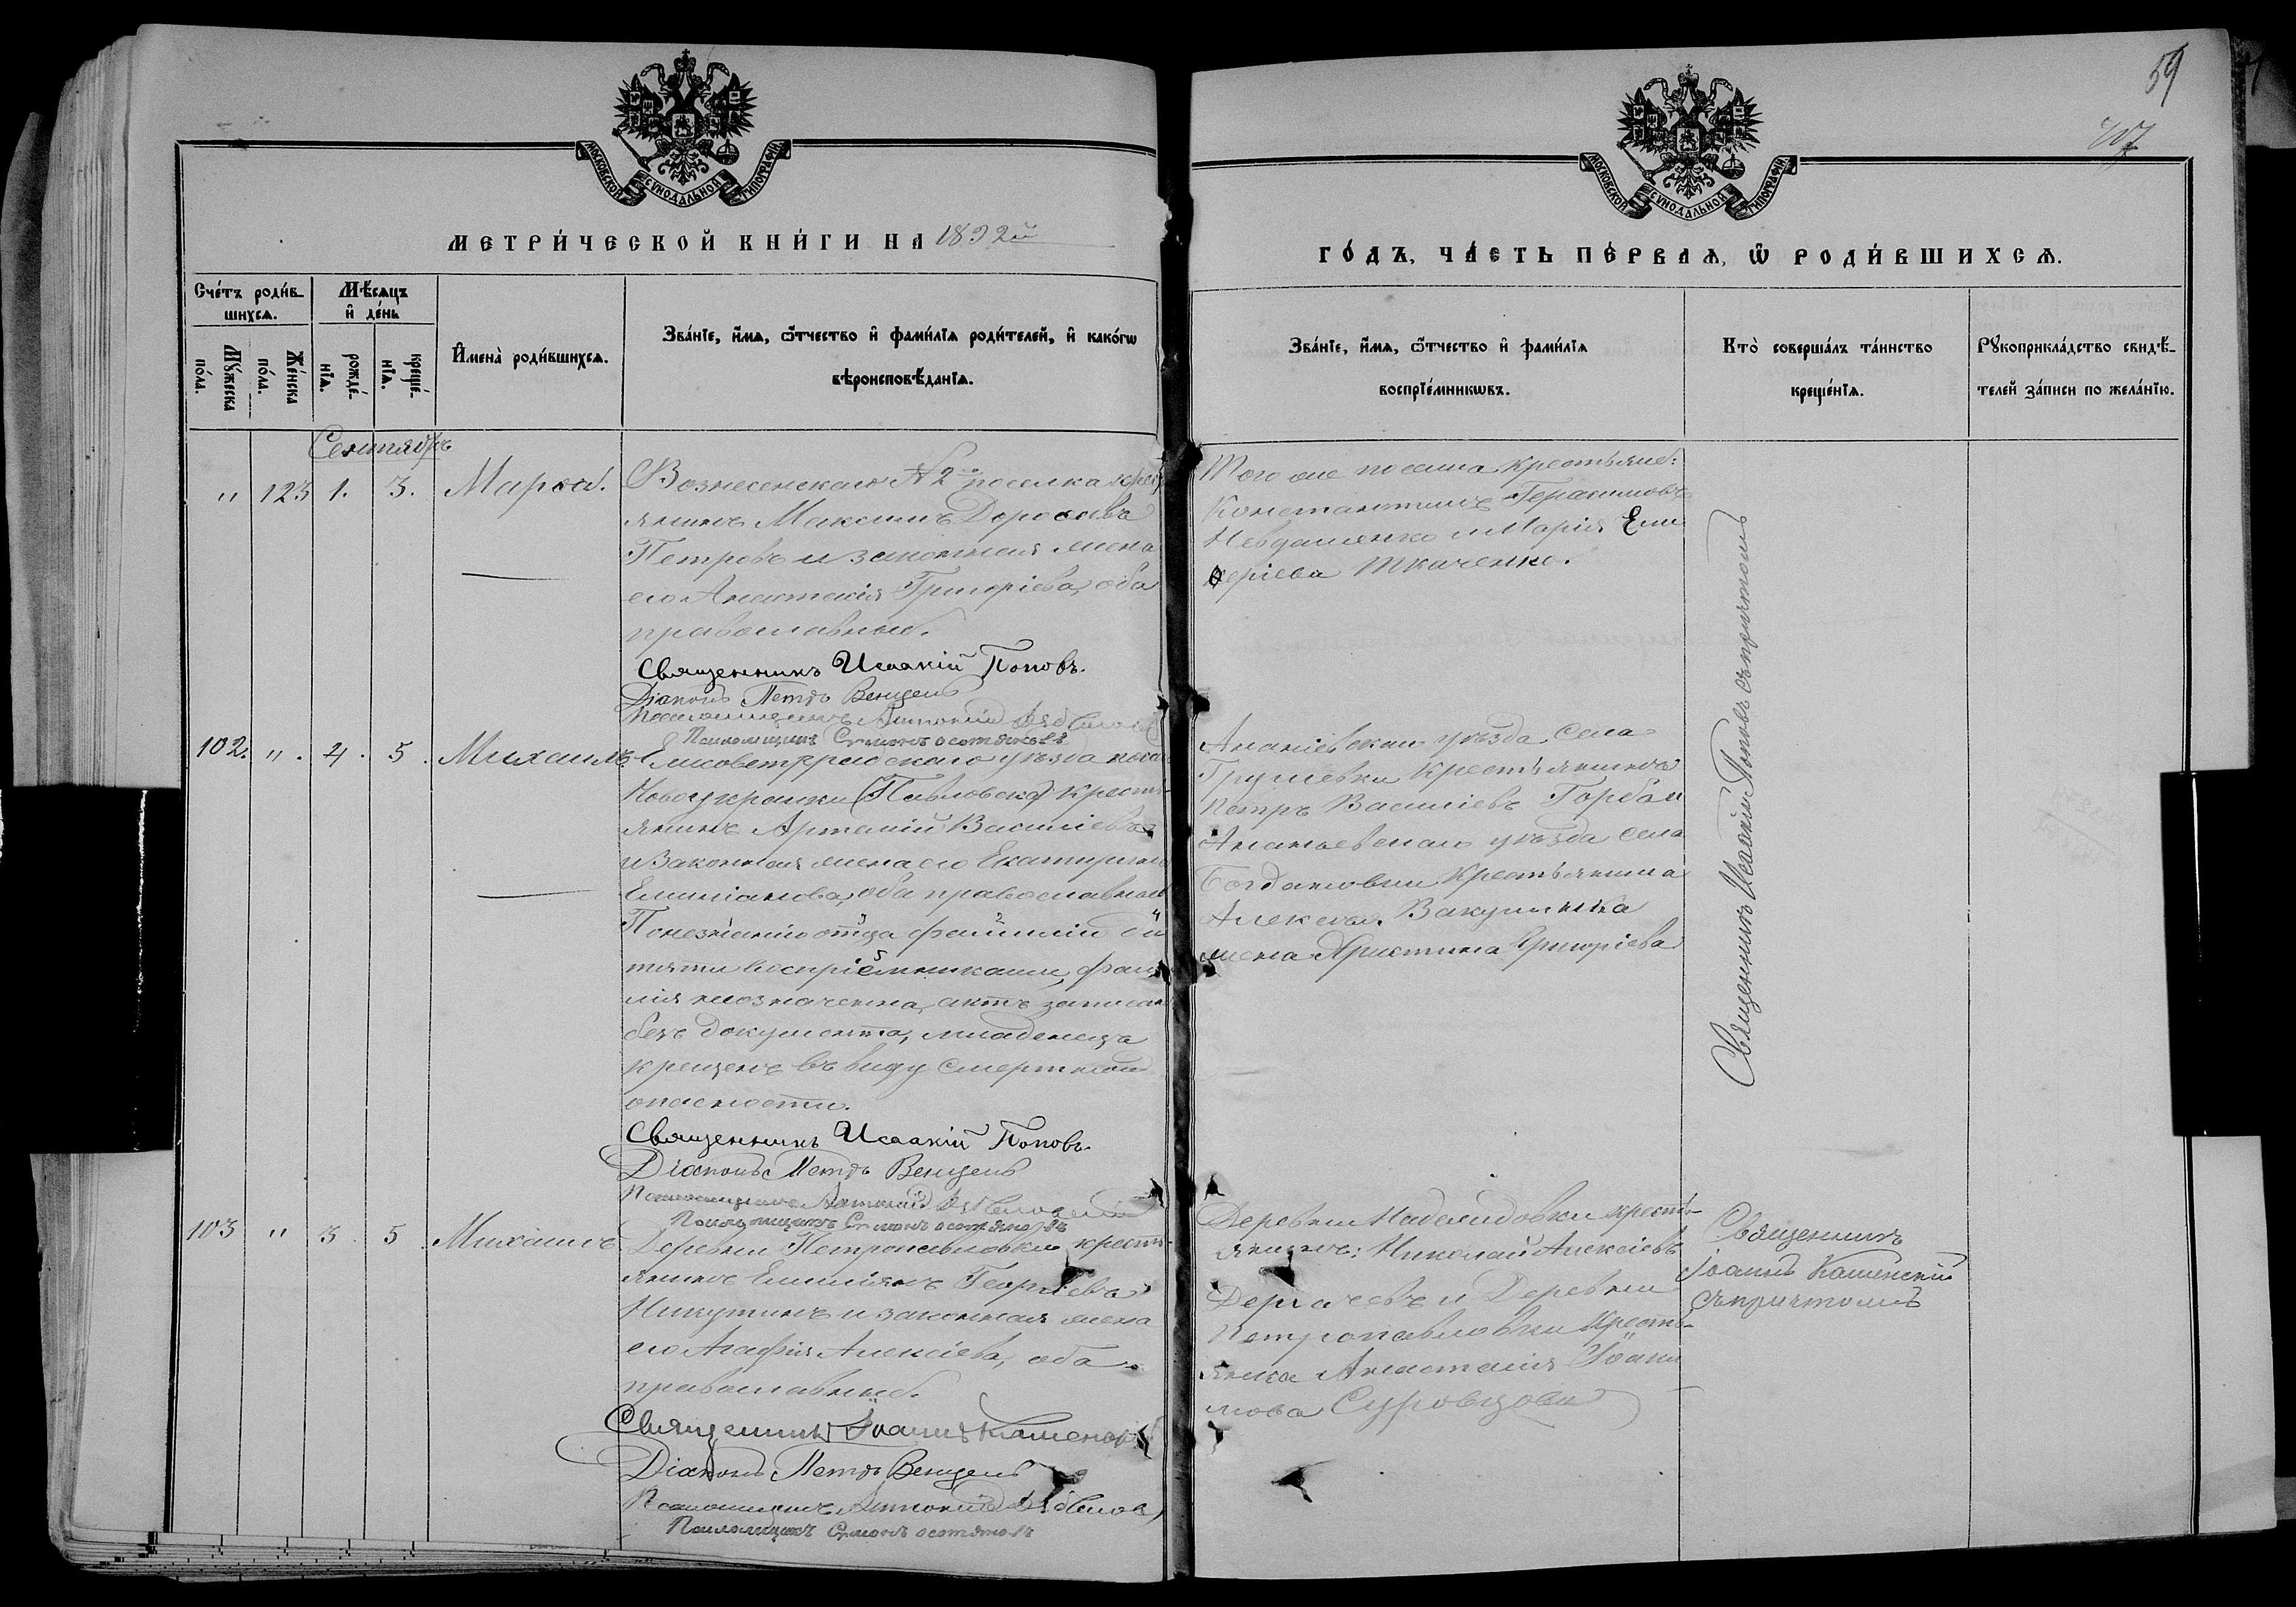 59
МОСКОВСКОЙ СѴНОДАЛЬНОЙ ТИПОГРАФІИ
МОСКОВСКОЙ СѴНОДАЛЬНОЙ ТИПОГРАФІИ
МЕТРИ́ЧЕСКОЙ КНИ́ГИ НА 1892й
ГО́ДЪ, ЧА́СТЬ ПЕ́РВАѦ, Ѡ҆ РОДИ́ВШИХСѦ.
Сче́тъ роди́в-
шихсѧ.
Мѣ́сѧцъ
и҆ де́нь
Мꙋ́жеска
по́ла.
Же́нска
по́ла.
рожде́-
нїѧ.
креще́-
нїѧ.
И҆мена̀ роди́вшихсѧ.
Зва́нїе, и҆́мѧ, ѻ҆́тчество и҆ фами́лїѧ роди́телей, и҆ како́гѡ
вѣроисповѣ́данїѧ.
Зва́нїе, и҆́мѧ, ѻ҆́тчество и҆ фами́лїѧ
воспрїе́мникѡвъ.
Кто̀ соверша́лъ та́инство
креще́нїѧ.
Рꙋкоприкла́дство свидѣ́-
телей за́писи по жела́нїю.
Сентябрь
" 123 1. 3. Марѳа.
Вознесенскаго №2го поселка крест
янинъ Максимъ Дороѳеевъ
Петровъ и законная жена
его Анастасія Григоріева, оба
православные.
Священникъ Исаакій Поповъ.
Діаконъ Петръ Венцель
Псаломщикъ Антоній
Псаломщикъ Симонъ
Того же поселка крестьяне:
Константинъ Герасимовъ
Невдашенко и Марія Ели
ѳеріева Ткаченко.
Священникъ Исаакій Поповъ съ причтомъ
102. " 4. 5. Михаилъ.
Елисаветградскаго уѣзда посада
Новоукраинки (Павловска) кресть-
янинъ Артемій Василіевъ
и законная жена его Екатерина
Емиліанова, оба православные
По незнанію отца фамиліи ди
тяти воспріемниками, фами
лія не означена, актъ записанъ
безъ документа, младенецъ
крещенъ въ виду смертной
опасности.
Священникъ Исаакій Поповъ.
Діаконъ Петръ Венцель
Псаломщикъ Антоній
Псаломщикъ Симонъ
Ананіевскаго уѣзда села
Грушевки крестьянинъ
Петръ Василіевъ Горбан
Ананьевскаго уѣзда села
Богдановки крестьянина
Алексѣя Вакулина
жена Христина Григоріева
103 " 3. 5. Михаилъ
Деревни Петропавловки кресть-
янинъ Емиліянъ Георгіевъ
Никутинъ и законная жена
его Агафія Алексіева, оба
православные.
Священникъ Іоаннъ Каменскій
Діаконъ Петръ Венцель
Псаломщикъ Антоній
Псаломщикъ Симонъ
Деревни Надеждовки кресть-
янинъ: Николай Алексіевъ
Дергачевъ и Деревни
Петропавловки кресть-
янка Анастасія Іоан
нова Суровцова
Священникъ
Іоаннъ Каменскій
съ причтомъ